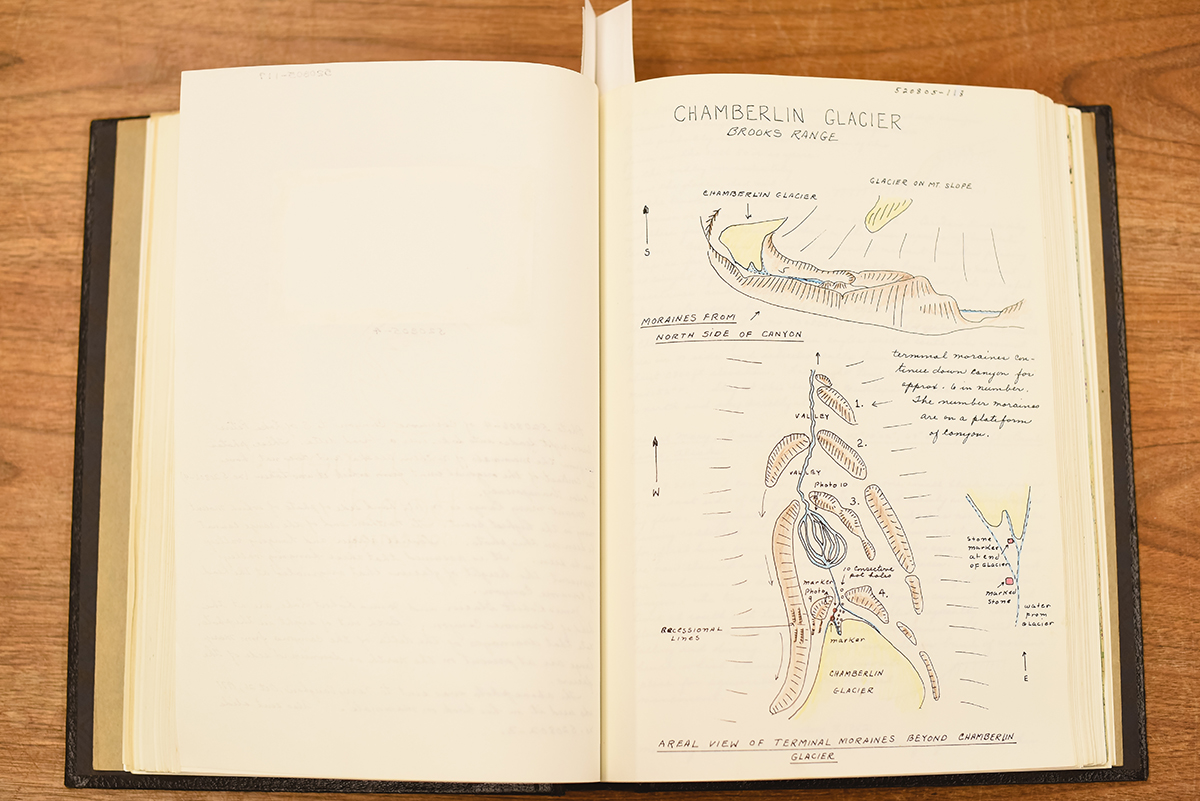 520805-113
CHAMBERLIN GLACIER
BROOKS RANGE
GLACIER ON MT. SLOPE
CHAMBERLIN GLACIER
S
MORAINES FROM
NORTH SIDE OF CANYON
terminal moraines con-
tinue down canyon for
approx. 6 in number.
The number moraines
are on a plateform
of canyon.
1.
VALLEY
2.
W
VALLEY
Photo 10
3.
Stone
marker
at end
of Glacier
10 Consective
pot holes
marker
Photo
9
4.
marked
Stone
water
from
Glacier
Recessional
Lines
marker
E
CHAMBERLIN
GLACIER
AREAL VIEW OF TERMINAL MORAINES BEYOND CHAMBERLIN
GLACIER